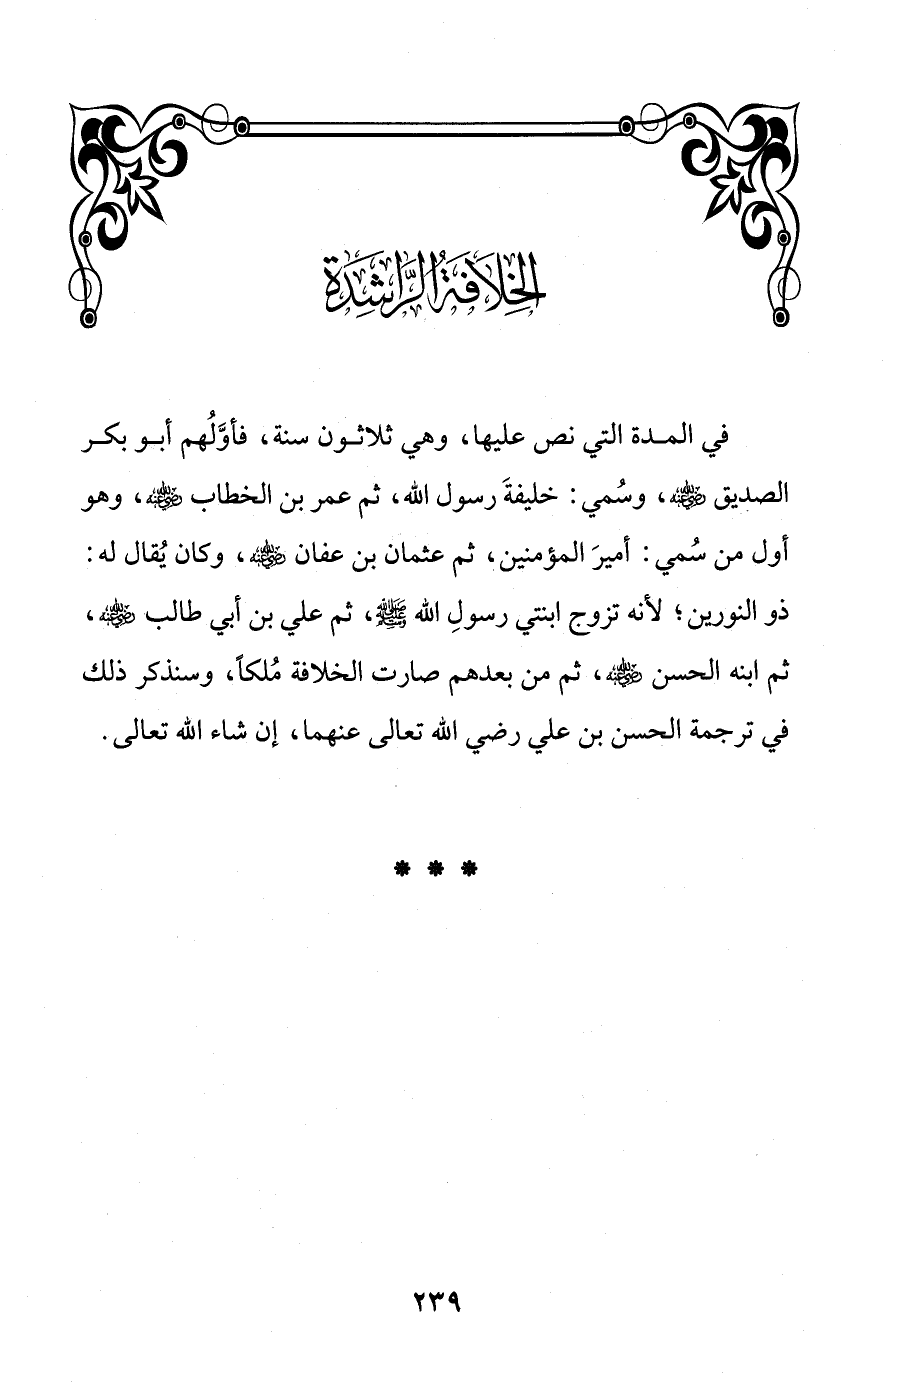 الخِلَافَةُ الرَّاشِدَة
في المـدة التي نص عليها، وهي ثلاثـون سنة، فأوَّلُهم أبـو بكـر
الصديق رضي الله عنه، وسُمي: خليفةَ رسول الله، ثم عمر بن الخطاب رضي الله عنه، وهو
أول من سُمي: أميرَ المؤمنين، ثم عثمان بن عفان رضي الله عنه، وكان يُقال له:
ذو النورين؛ لأنه تزوج ابنتي رسولِ الله ﷺ، ثم علي بن أبي طالب رضي الله عنه،
ثم ابنه الحسن رضي الله عنه، ثم من بعدهم صارت الخلافة مُلكاً، وسنذكر ذلك
في ترجمة الحسن بن علي رضي الله تعالى عنهما، إن شاء الله تعالى.
* * *
٢٣٩